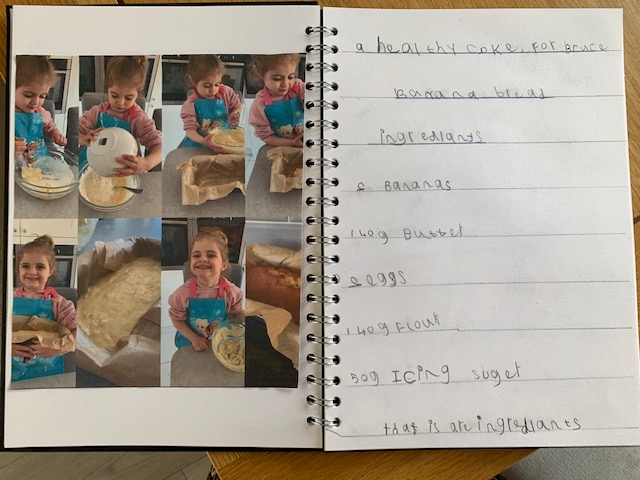 a healthy cake. For Bruce
Banana bread
ingrediants
2 Bananas
140g Butter
2 eggs
140g Flour
50g Icing suger
that is are ingrediants